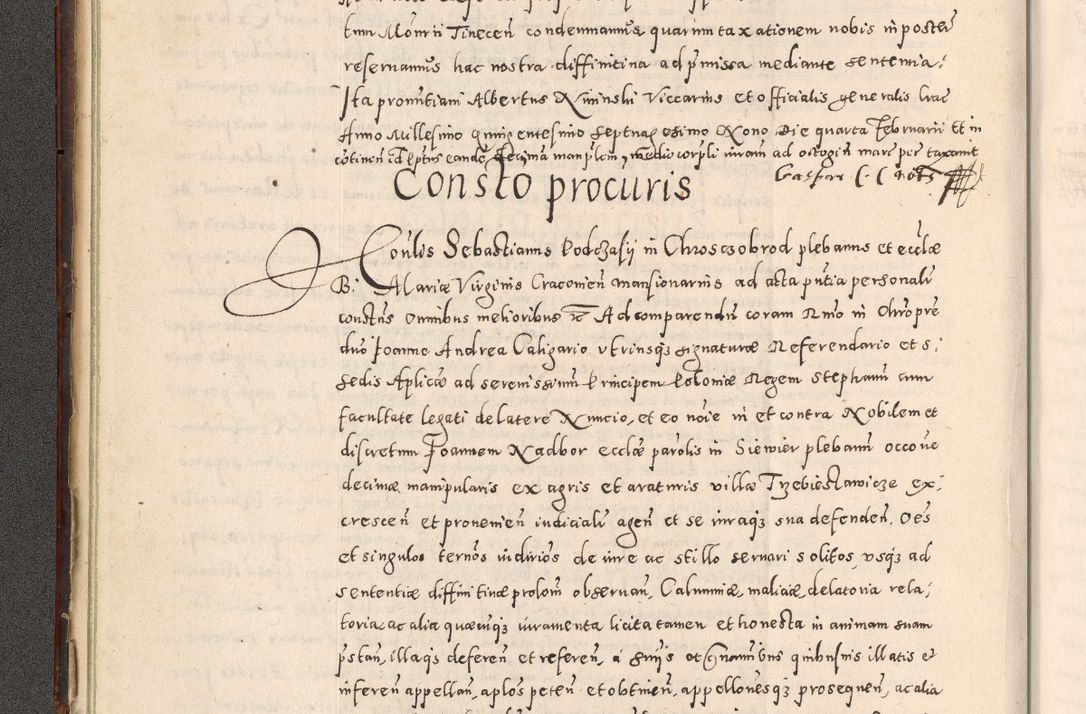 tum Monrii Tinecen̄ condemnamus quarum taxationem nobis in poster
reservamus hac nostra diffinitiva ad p̄missa mediante sententia:
Ita pronuntiavi Albertus Niminski Viccarius et officialis generalis Crac
Anno Millesimo quingentesimo septuagesimo Nono Die quarta Februarii Et in
ad octogin̄ marc per taxavit
Gaspar
Consto procuris
Honlis Sebastianus Podczasy in Chrosczobrod plebanus et ecclæ
B: Mariæ Virginis Cracovien̄ mansionarius ad acta pn̄tia personalr̄
constns omnibus melioribus rc Ad comparendū coram Rmo in Chrō pre
dno Joanne Andrea Caligario utriusqȝ signaturæ Referendario et s:
sedis Aplicæ ad serenissimū Principem Poloniæ Regem Stephanū cum
facultate legati de latere Nuncio, et eo noie in et contra Nobilem et
discretum Joannem Nadbor ecclæ parolis in Siewier plebanū occoue
decimæ manipularis ex agris et araturis villæ Trzebiesławicze ex:
crescen̄ et provenien̄ iudicialr̄ agen̄ et se iuraqȝ sua defenden̄, Oes
et singulos ternos iudirios de iure ac stillo servari solitos, usqȝ ad
sententiæ diffinitinæ prolom̄ observan̄, Calumniæ, maliciæ, delatoria rela:
toria, ac alia quæcuqȝ iuramenta licita tamen et honesta in animam suam
p̄stan̄, illaqȝ deferen̄ et referen̄, a suis et
inferen̄ appellan̄, aplos peten̄ et obtinen̄, appellonesqȝ prosequen̄, ac alia